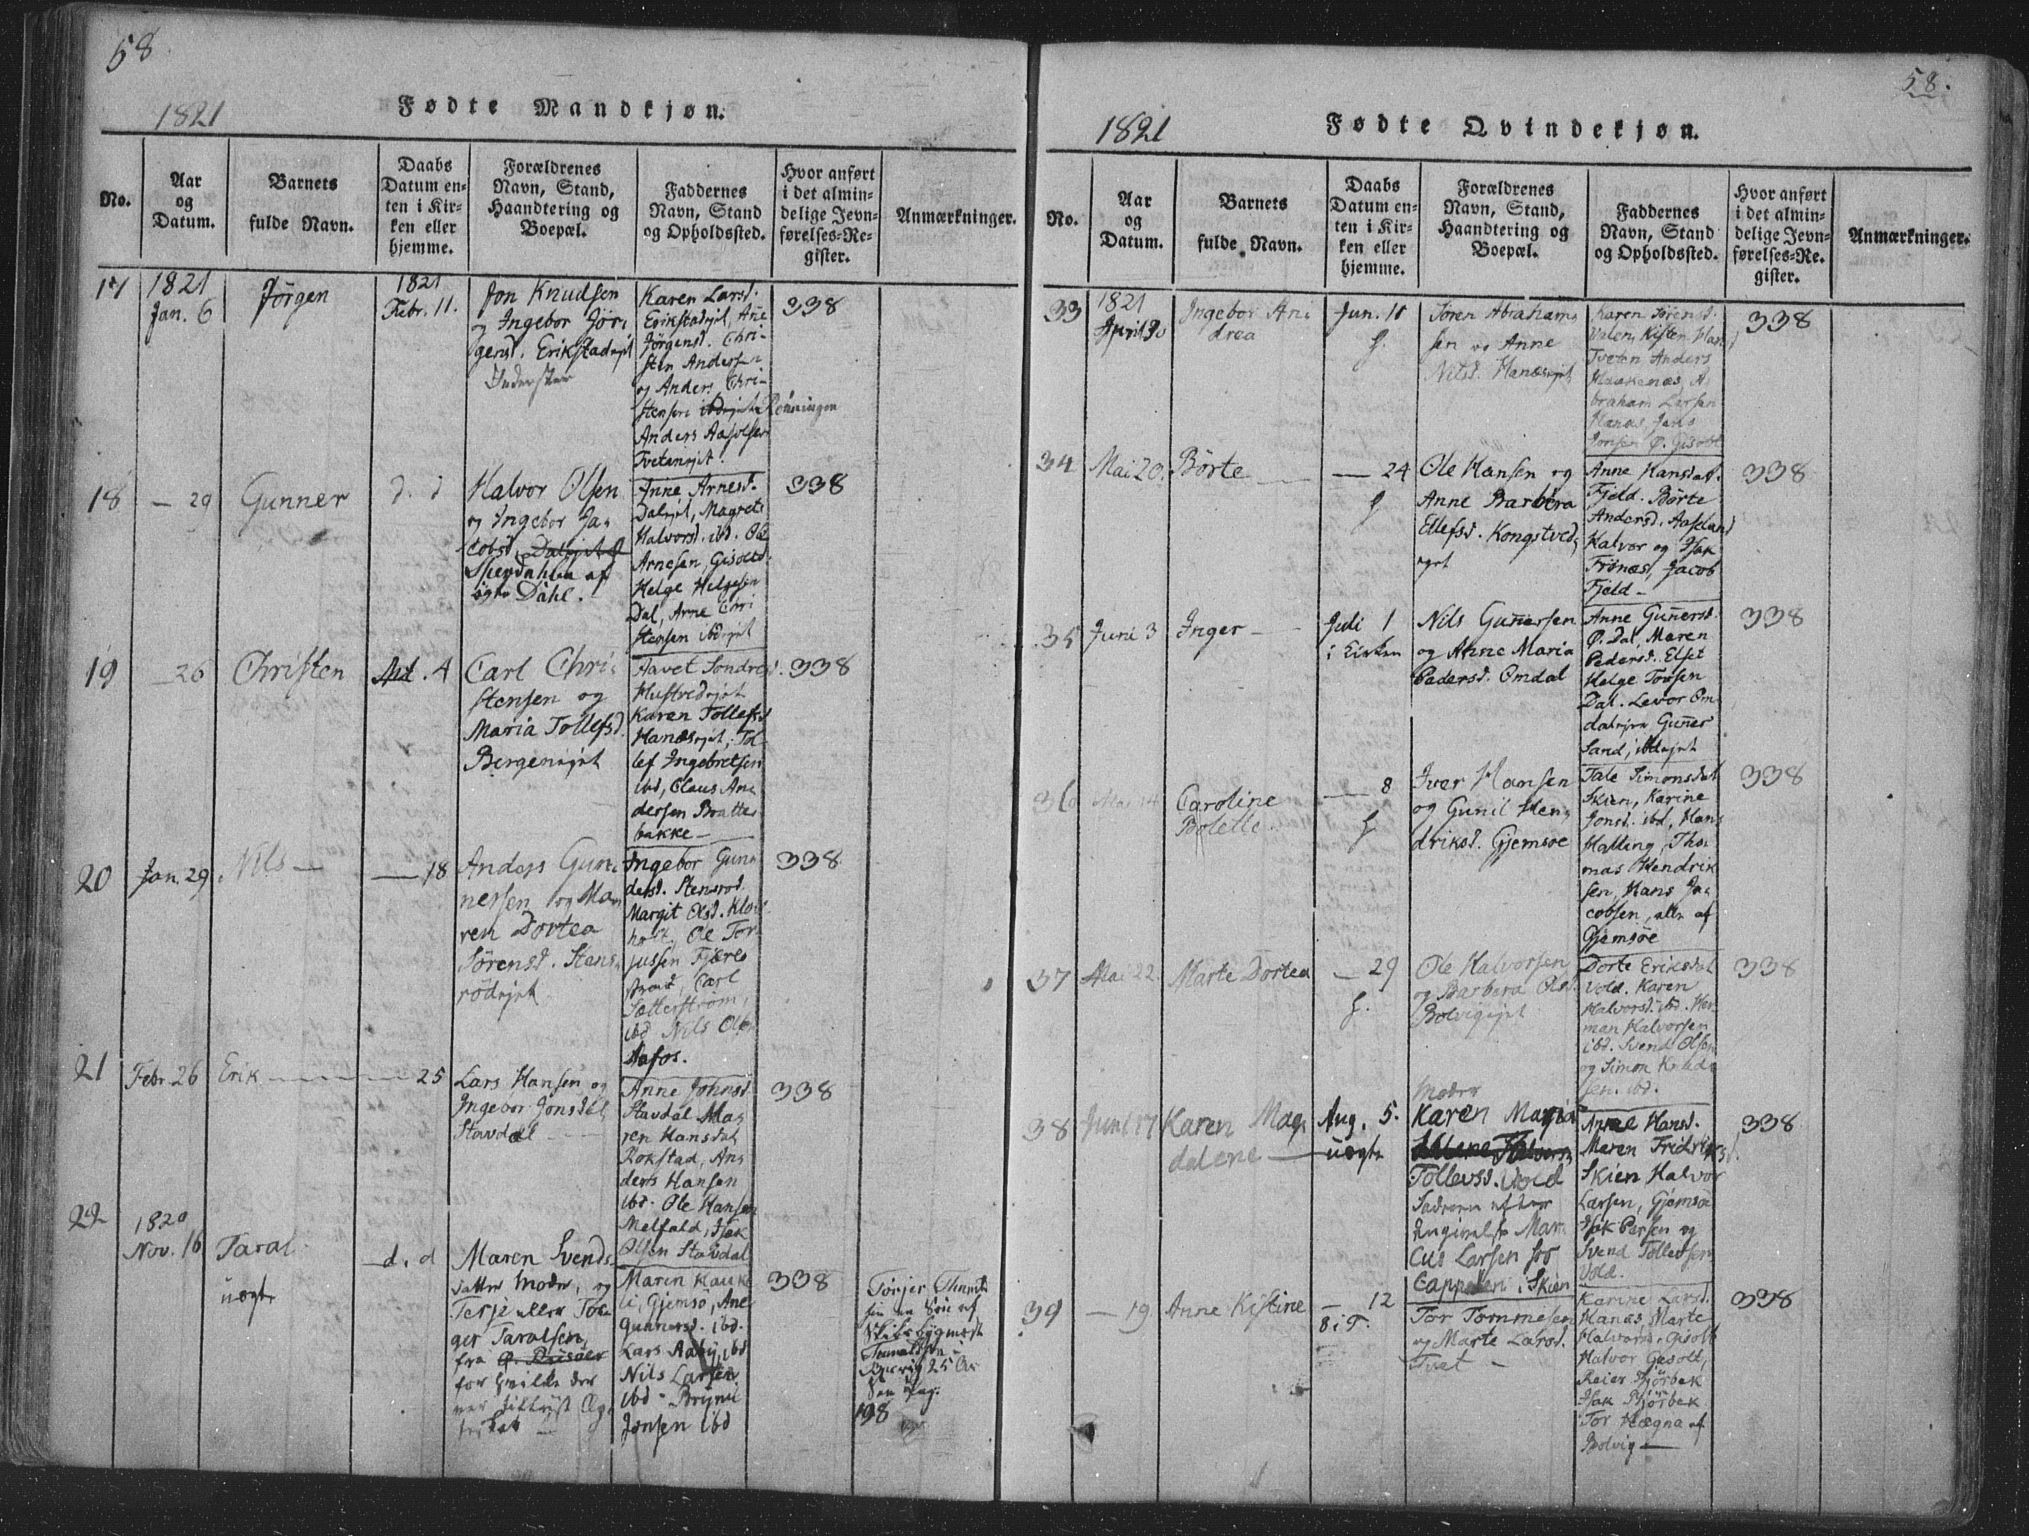 58.
1821
Fødte Mandkjøn.
No.
Aar
og
Datum.
Barnets
fulde Navn.
Daabs
Datum en-
ten i Kir-
ken eller
hjemme.
Forældrenes
Navn, Stand,
Haandtering og
Boepæl.
Faddernes
Navn, Stand
og Opholdssted.
Hvor anført
i det almin-
delige Jevn-
førelses-Re-
gister.
Anmærkninger.
17
1821
Jan. 6
Jörgen
1821
Febr. 11.
Jon Knudsen
og Ingebor Jör-
gensd. Erikstadejet
Inderster
Karen Larsd.
Erikstadejet, Ane
Jörgensd. Chri-
sten Andersen
og Anders Chri-
stensen ibdejet Rönningen
Anders Aasolsen
Tvetenejet.
338
18
— 29
Gunner
d. d
Halvor Olsen
og Ingebor Ja-
cobsd. Dalejet
af
Dahl.
Anne Arnesd.
Dalejet, Magrete
Halvorsd. ibd. Ole
Arnesen, Gisolt
Helge Helgesen
Dal, Arne Chri
stensen ibdejet
338
19
— 26
Christen
Md. 4
Carl Chri-
stensen og
Maria Tollefsd.
Bergenejet
Aavet Sondresd.
Hustvedejet
Karen Tollefsd
Hanæsejet, Tol-
lef Ingebretsen
ibd, Claus An-
dersen Bratte-
bakke —
338
20
Jan. 29
Nils —
— 18
Anders Gun-
nersen og Ma-
ren Dortea
Sörensd. Stens-
rödejet
Ingebor Gun-
dersd. Stensrod
Margit Olsd. Klov-
holt, Ole Tor-
jussen Fjære-
strand, Carl
Sætterström,
ibd Nils Olsen
Aafos.
338
21
Febr. 26
Erik —
— 25
Lars Hansen og
Ingebor Jonsdat,
Stavdal —
Anne Johnsd
Stavdal Ma-
ren Hansdat
Rokstad, An-
ders Hansen
ibd. Ole Hansen
Melfald, Isak
Olsen Stavdal
338
22
1820
Nov. 16
Taral
uægte
— d. d
Maren Svends-
datter Moder, og
Terje eller Tön-
ger Taralsen,
fra Ö. Riisöer
for hvilke der
var tillyst Æg-
teskab —
Maren Hauke-
li, Gjemsö, Ane
Gunnersd. ibd.
Lars Aaby, ibd
Nils Larsen
ibd - Brynil
Jonsen ibd
338
Tönjer
198
58.
1821
Fødte Qvindekjøn.
No.
Aar
og
Datum.
Barnets
fulde Navn.
Daabs
Datum en-
ten i Kir-
ken eller
hjemme.
Forældrenes
Navn, Stand,
Haandtering og
Boepæl.
Faddernes
Navn, Stand
og Opholdssted.
Hvor anført
i det almin-
delige Jevn-
førelses-Re-
gister.
Anmærkninger.
33
1821
April 30
Ingebor An-
drea
Jun. 11
H.
Sören Abraham-
sen og Anne
Nilsd. Hanæsejet
Karen Sörensd.
Valen, Kisten Han
Tveten Anders
Haukenæs, A-
braham Larsen
Hanæs, Jens
Jonsen Ö. Gisolt
338
34
Mai 20.
Börte —
— 24
H
Ole Hansen og
Anne Barbera
Ellefsd. Kongstved-
ejet
Anne Hansdat.
Fjeld. Börte
Andersd. Aaseland
Halvor og Isak
Frönæs, Jacob
Fjeld —
338
35
Juni 3
Inger —
Juli 1
i Kirken
Nils Gunersen
og Anne Maria
Pedersd. Omdal
Anne Gunersd.
Ö. Dal, Maren
Pedersd. Elset
Helge Torsen
Dal. Levor Om-
dalejet Guner
Sand, ibdejet
338
36
Mai 14
Caroline
Bolette.
— 8
H
Iver Hansen
og Gunil Hen-
driksd. Gjemsöe
Tale Simonsdat
Skien, Karine
Jonsd. ibd, Hans
Halling, Tho-
mas Hendrik-
sen, Hans Ja-
cobsen, alle af
Gjemsöe
338
37
Mai 22
Marte Dortea
— 29
H.
Ole Halvorsen
og Barbera Olsd.
Bolvigejet
Dorte Eriksdat
Vold. Karen
Halvorsd ibd. Her-
man Halvorsen
ibd. Svend Olsen
og Simon Knud-
sen. ibd.
338
38
Juni 17
Karen Mag-
dalene —
Aug. 5.
uægte
Moder
Karen Maria
Tollevsd. Vold
Faderen efter
Angivelse Mar-
cus Larsen hos
Cappelen i Skien
Anne Hansd.
Maren Fridriksd.
Skien Halvor
Larsen, Gjemsöe
Isak Persen og
Svend Tollevsen
Vold.
338
39
— 19
Anne Kistine
— 12
8 i T.
Tor Tommesen
og Marte Larsd.
Tvet —
Karine Larsd.
Hanæs, Marte
Halvorsd. Gisolt
Halvor Gisolt,
Reier Björbæk
Isak Björbæk
Tor Hægna af
Bolvig —
338